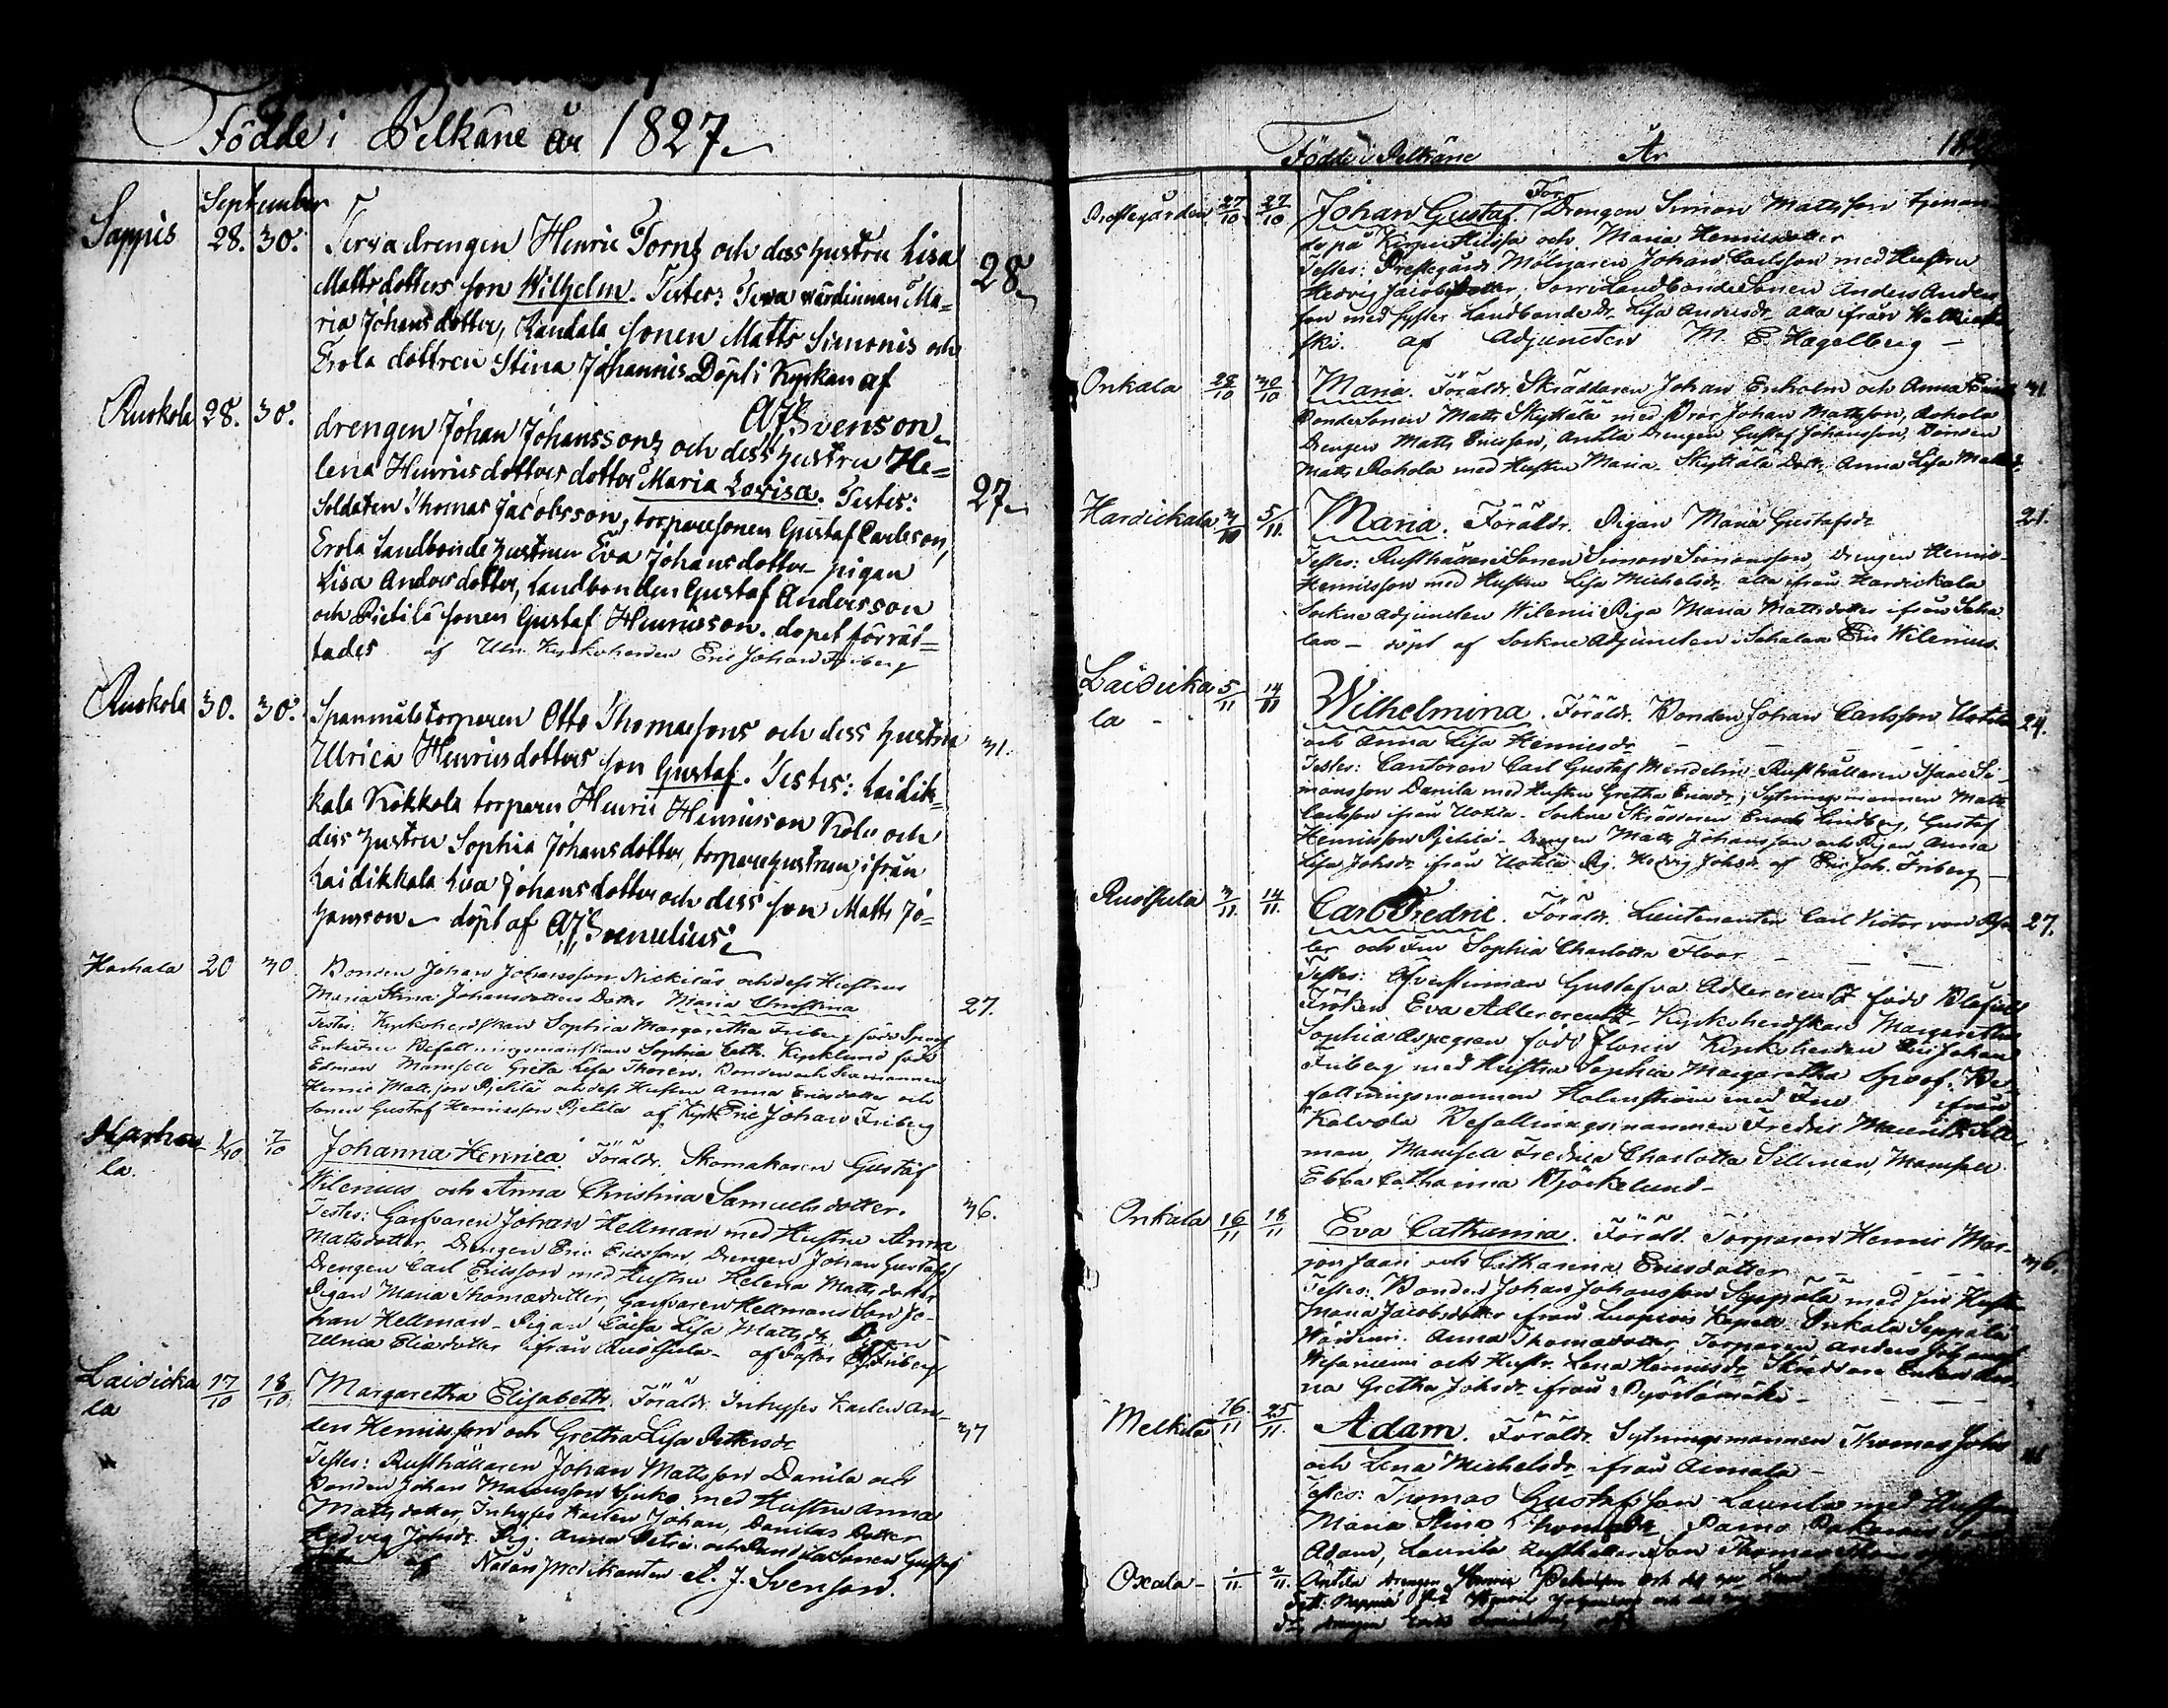 Födde i Pelkäne år 1827
September
Sappis 28. 30. Terva drengen Henric Tornz och dess hustru Lisa 28
Mattsdotters son Wilhelm. Testes: Terva värdinnan Ma=
ria Johansdotter, Kandala sonen Matts Simonis och
Erola dottren Stina Johannis Döpt i Kyrkan af
AJSvenson
Ruokola 28. 30. drengen Johan Johanssons och dess hustru He=
lena Henricsdotters dotter Maria Lovisa. Testes: 27
Soldaten Thomas Jacobsson, torparesonen Gustaf Carlsson,
Erola Landbonde hustrun Eva Johansdotter pigan
Lisa Andersdotter, Landbonden Gustaf Andersson
och Pietilä sonen Gustaf Henricsson. dopet förrät=
tades af Kyrkoherden Eric Johan Friberg
Ruokola 30. 30. Spanmåls torparen Otto Thomassons och dess hustru 31.
Ulrica Henricsdotters son Gustaf. Testes: Laidik=
kala Kokkola torparen Henric Henricsson Kolu och
dess hustru Sophia Johansdotter, torparehustrun ifrån
Laidikkala Eva Johansdotter och dess son Matts Jo=
hansson döpt af AJSvenulius
Harhala 20 30. Bonden Johan Johansson Nickiläs och dess Hustrus
Maria Stina Johansdotters Dotter Maria Christina 27.
Testes: Kyrkoherdskan Sophia Margaretha Friberg född Spoof
Enkefru Befallningsmanskan Sophia Cath. Kyrklund född
Edman Mamsell Greta Lisa Thoren. Bonden och Sexmannen
Henric Mattsson Pietilä och dess Hustru Anna Ericsdotter och
sonen Gustaf Henricsson Pietilä af Kyrkh Eric Johan Friberg
Harha 1/10 7/10 Johanna Henrica. Föräldr. Skomakaren Gustaf
la. Wilenius och Anna Christina Samuelsdotter. 36.
Testes: Garfvaren Johan Hellman med Hustru Anna
Mattsdotter, Drengen Eric Ericsson, Drengen Johan Gustafs
Drengen Carl Ericsson med Hustru Helena Mattsdotter
Pigan Maria Thomædotter, Garfvaren Hellmans Son Jo-
han Hellman. Pigan Caisa Lisa Mattsdr, Pigan
Ulrica Eliædotter ifrån Ruothula af Pastor EJFriberg
Laidicka 17/10 18/10 Margaretha Elisabeth. Föräldr. Inhyses Karlen An-
la ders Henricsson och Gretha Lisa Pettersdr 37
Testes: Rusthållaren Johan Mattsson Danila och
Bonden Johan Mattsson Sjuko med Hustru Anna
Mattsdotter, Inhyses Karlen Johan, Danilas Dotter
Hedvig Johsdr. Pig. Anna Petri. och Landila Sonen Gustaf
af Nådårs Predikanten A. J. Svenson.
Födde i Pelkäne År 182
Prostegården 27/10 27/10 Johan Gustaf. För. Drengen Simon Mattsson tjenan
de på Kirpu Hilissa och Maria Henricsdotter
Testes: Prostegårds Mölnaren Johan Carlsson med Hustru
Hedvig Jacobsdotter, Sorri Landbonde Sonen Anders Anders
son med syster Landbonde Dr. Lisa Andersdr alla ifrån
af Adjuncten M. E. Hagelberg
Onkala 28/10 30/10 Maria. Föräldr. Skräddaren Johan Enholm och Anna 31.
Bonde Sonen Matts Skyttälä med Bror Johan Mattsson, Rohola
Drengen Matts Ericsson, Antila Drengen Gustaf Johansson, Bonden
Matts Rohola med Hustru Maria. Skyttälä Dotr. Anna Lisa Mattsdr.
Hardickala 31/10 5/11. Maria. Föräldr. Pigan Maria Gustafsdr 21.
Testes: Rusthållare Sonen Simon Simonsson, Drengen Henric
Henricsson med Hustru Lisa Michelsdr. alla ifrån Hardickala
Sockne adjuncten Wilenii Piga Maria Mattsdotter ifrån Saha
lax - döpt af Sockne Adjuncten i Sahalax Eric Wilenius.
Laidicka 5/11 14/11 Wilhelmina. Föräldr. Bonden Johan Carlsson Uotila 24.
la och Anna Lisa Henricsdr
Testes: Cantoren Carl Gustaf Mendelin Rusthållaren Isaac Si-
monsson Danila med Hustru Gretha Ericsdr, Sytningsmannen Matts
Carlsson ifrån Uotila. Sockne Skräddaren Enoch Lindberg, Gustaf
Henricsson Pietilä. Drengen Matts Johansson och Pigan Anna
Lisa Johsdr ifrån Uotila Pig. Hedvig Johsdr. af Eric Joh. Friberg
Ruothula 3/11. 14/11. Carl Fredric. Föräldr. Lieutenanten Carl Victor von 27.
ler och Fru Sophia Charlotta Floor
Testes: Öfverstinnan Gustafva Adlercreutz född Blåfield
Fröken Eva Adlercreutz Kyrkoherdskan Margaretha
Sophia Aspegren född Florin Kyrkoherden Eric Johan
Friberg med Hustru Sophia Margaretha Spoof. Be
fallningsmannen Holmström med Fru ifrån
Kalvola Befallningsmannen Fredric Mauritz Sell
man, Mamsell Fredrica Charlotta Sellman, Mamsell
Ebba Catharina Björkelund
Onkala 16/11 18/11 Eva Catharina. Föräld. Torparen Henric Mar- 36.
jon jaari och Catharina Ericsdotter
Testes: Bonden Johan Johansson Seppälä med sin Hustr
Maria Jacobsdotter ifrån Luopiois Kapell. Onkala Seppälä
Wärdinn. Anna Thomædotter, Torparen Anders Johansson
och Hustr. Lena Henricsdr Skräddare Enkan An
na Gretha Johsdr ifrån
Melkila 16/11 25/11. Adam. Föräldr. Sytningsmannen Thomas Johs
och Lena Michelsdr ifrån Aimala
Testes: Thomas Gustafsson Laurila med Hustru
Maria Stina Thomædr
Adam, Laurila Rusthållare Son Thomas
Oxala 1/11. 2/11. Antila drengen Henric och des